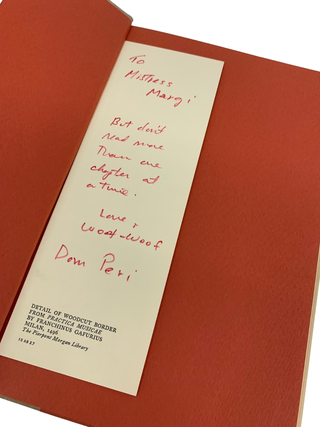 To
Mistress
Margi
But don't
read more
Than one
chapter at
a time.
Love &
Woof-Woof
Dom Peri
DETAIL OF WOODCUT BORDER
FROM PRACTICA MUSICAE
BY FRANCHINUS GAFURIUS
MILAN, 1496
The Pierpont Morgan Library